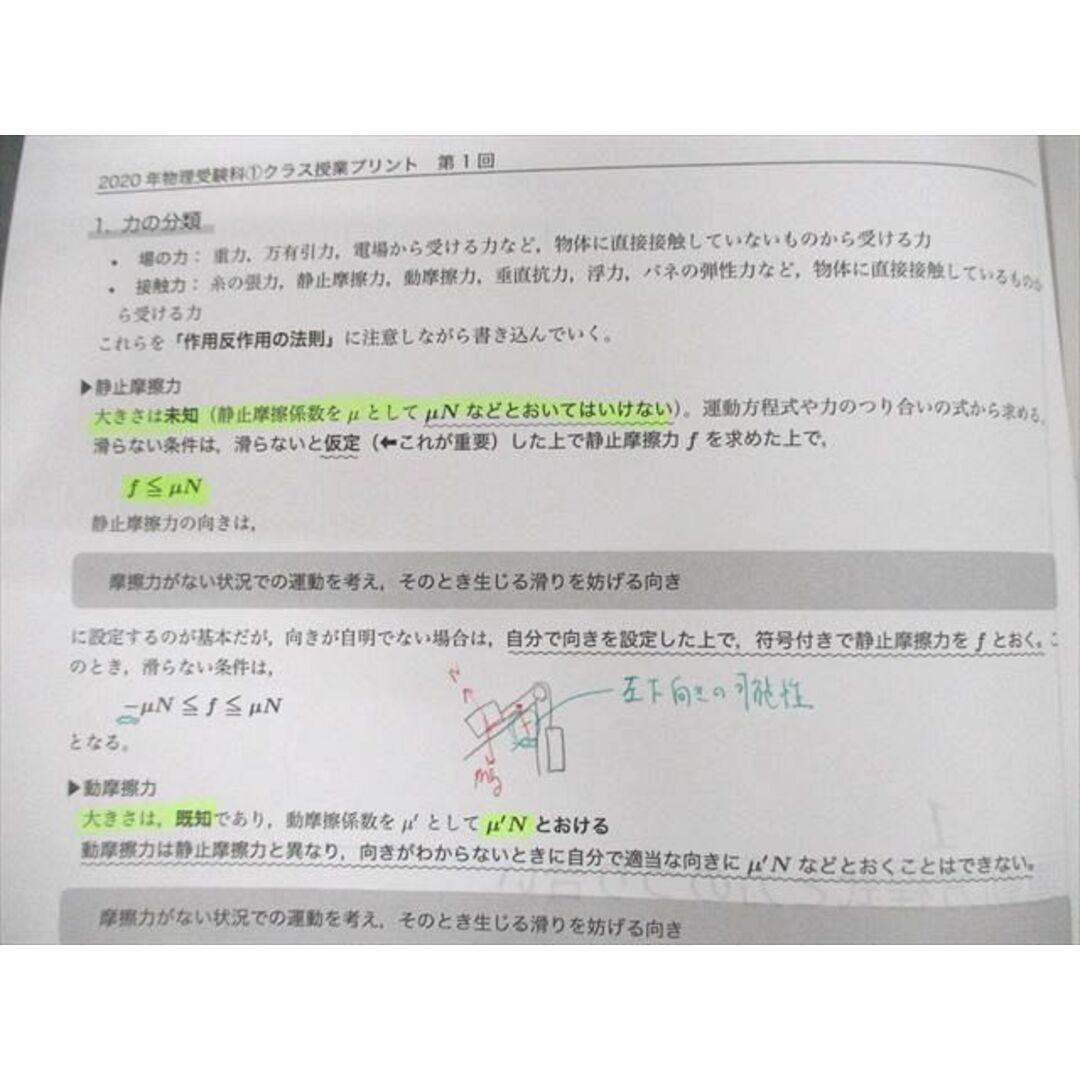 2020年物理受験科①クラス授業プリント 第1回
1. 力の分類
• 場の力: 重力, 万有引力, 電場から受ける力など, 物体に直接接触していないものから受ける力
• 接触力: 糸の張力, 静止摩擦力, 動摩擦力, 垂直抗力, 浮力, バネの弾性力など, 物体に直接接触しているものか
ら受ける力
これらを「作用反作用の法則」に注意しながら書き込んでいく。
▶静止摩擦力
大きさは未知(静止摩擦係数を μ として μN などとおいてはいけない)。運動方程式や力のつり合いの式から求める。
滑らない条件は, 滑らないと仮定(⬅これが重要)した上で静止摩擦力 f を求めた上で,
f ≦ μN
静止摩擦力の向きは,
摩擦力がない状況での運動を考え, そのとき生じる滑りを妨げる向き
に設定するのが基本だが, 向きが自明でない場合は, 自分で向きを設定した上で, 符号付きで静止摩擦力を f とおく。こ
のとき, 滑らない条件は,
−μN ≦ f ≦ μN
となる。
N
mg
左下向きの可能性
▶動摩擦力
大きさは, 既知であり, 動摩擦係数を μ′ として μ′N とおける
動摩擦力は静止摩擦力と異なり, 向きがわからないときに自分で適当な向きに μ′N などとおくことはできない。
摩擦力がない状況での運動を考え, そのとき生じる滑りを妨げる向き